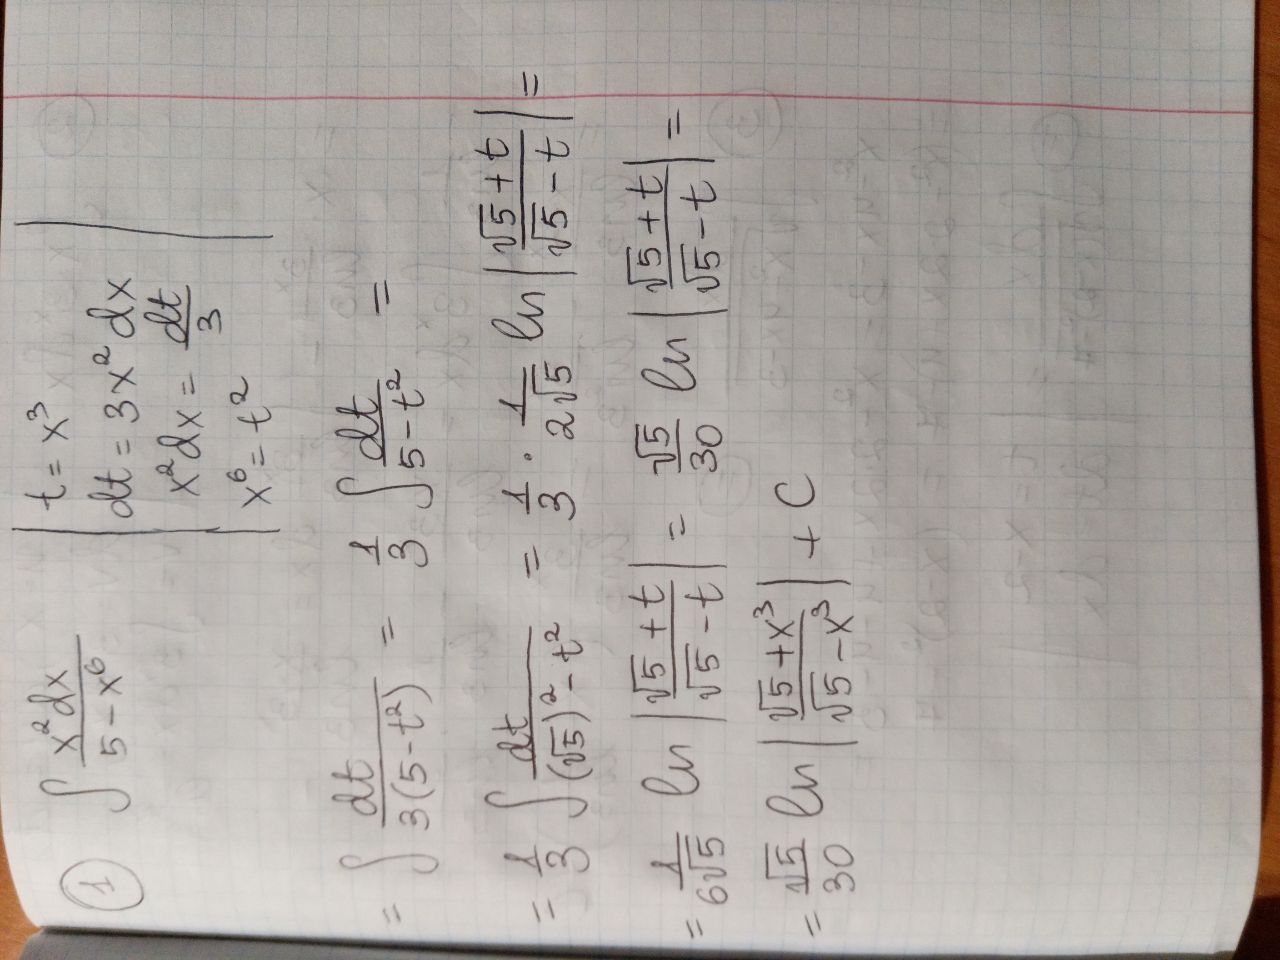 ① ∫ x² dx / (5 - x⁶) | t = x³
dt = 3x² dx
x² dx = dt / 3
x⁶ = t² |
= ∫ dt / (3(5 - t²)) = 1/3 ∫ dt / (5 - t²) =
= 1/3 ∫ dt / ((√5)² - t²) = 1/3 · 1/(2√5) ln |(√5 + t) / (√5 - t)| =
= 1/(6√5) ln |(√5 + t) / (√5 - t)| = √5/30 ln |(√5 + t) / (√5 - t)| =
= √5/30 ln |(√5 + x³) / (√5 - x³)| + C